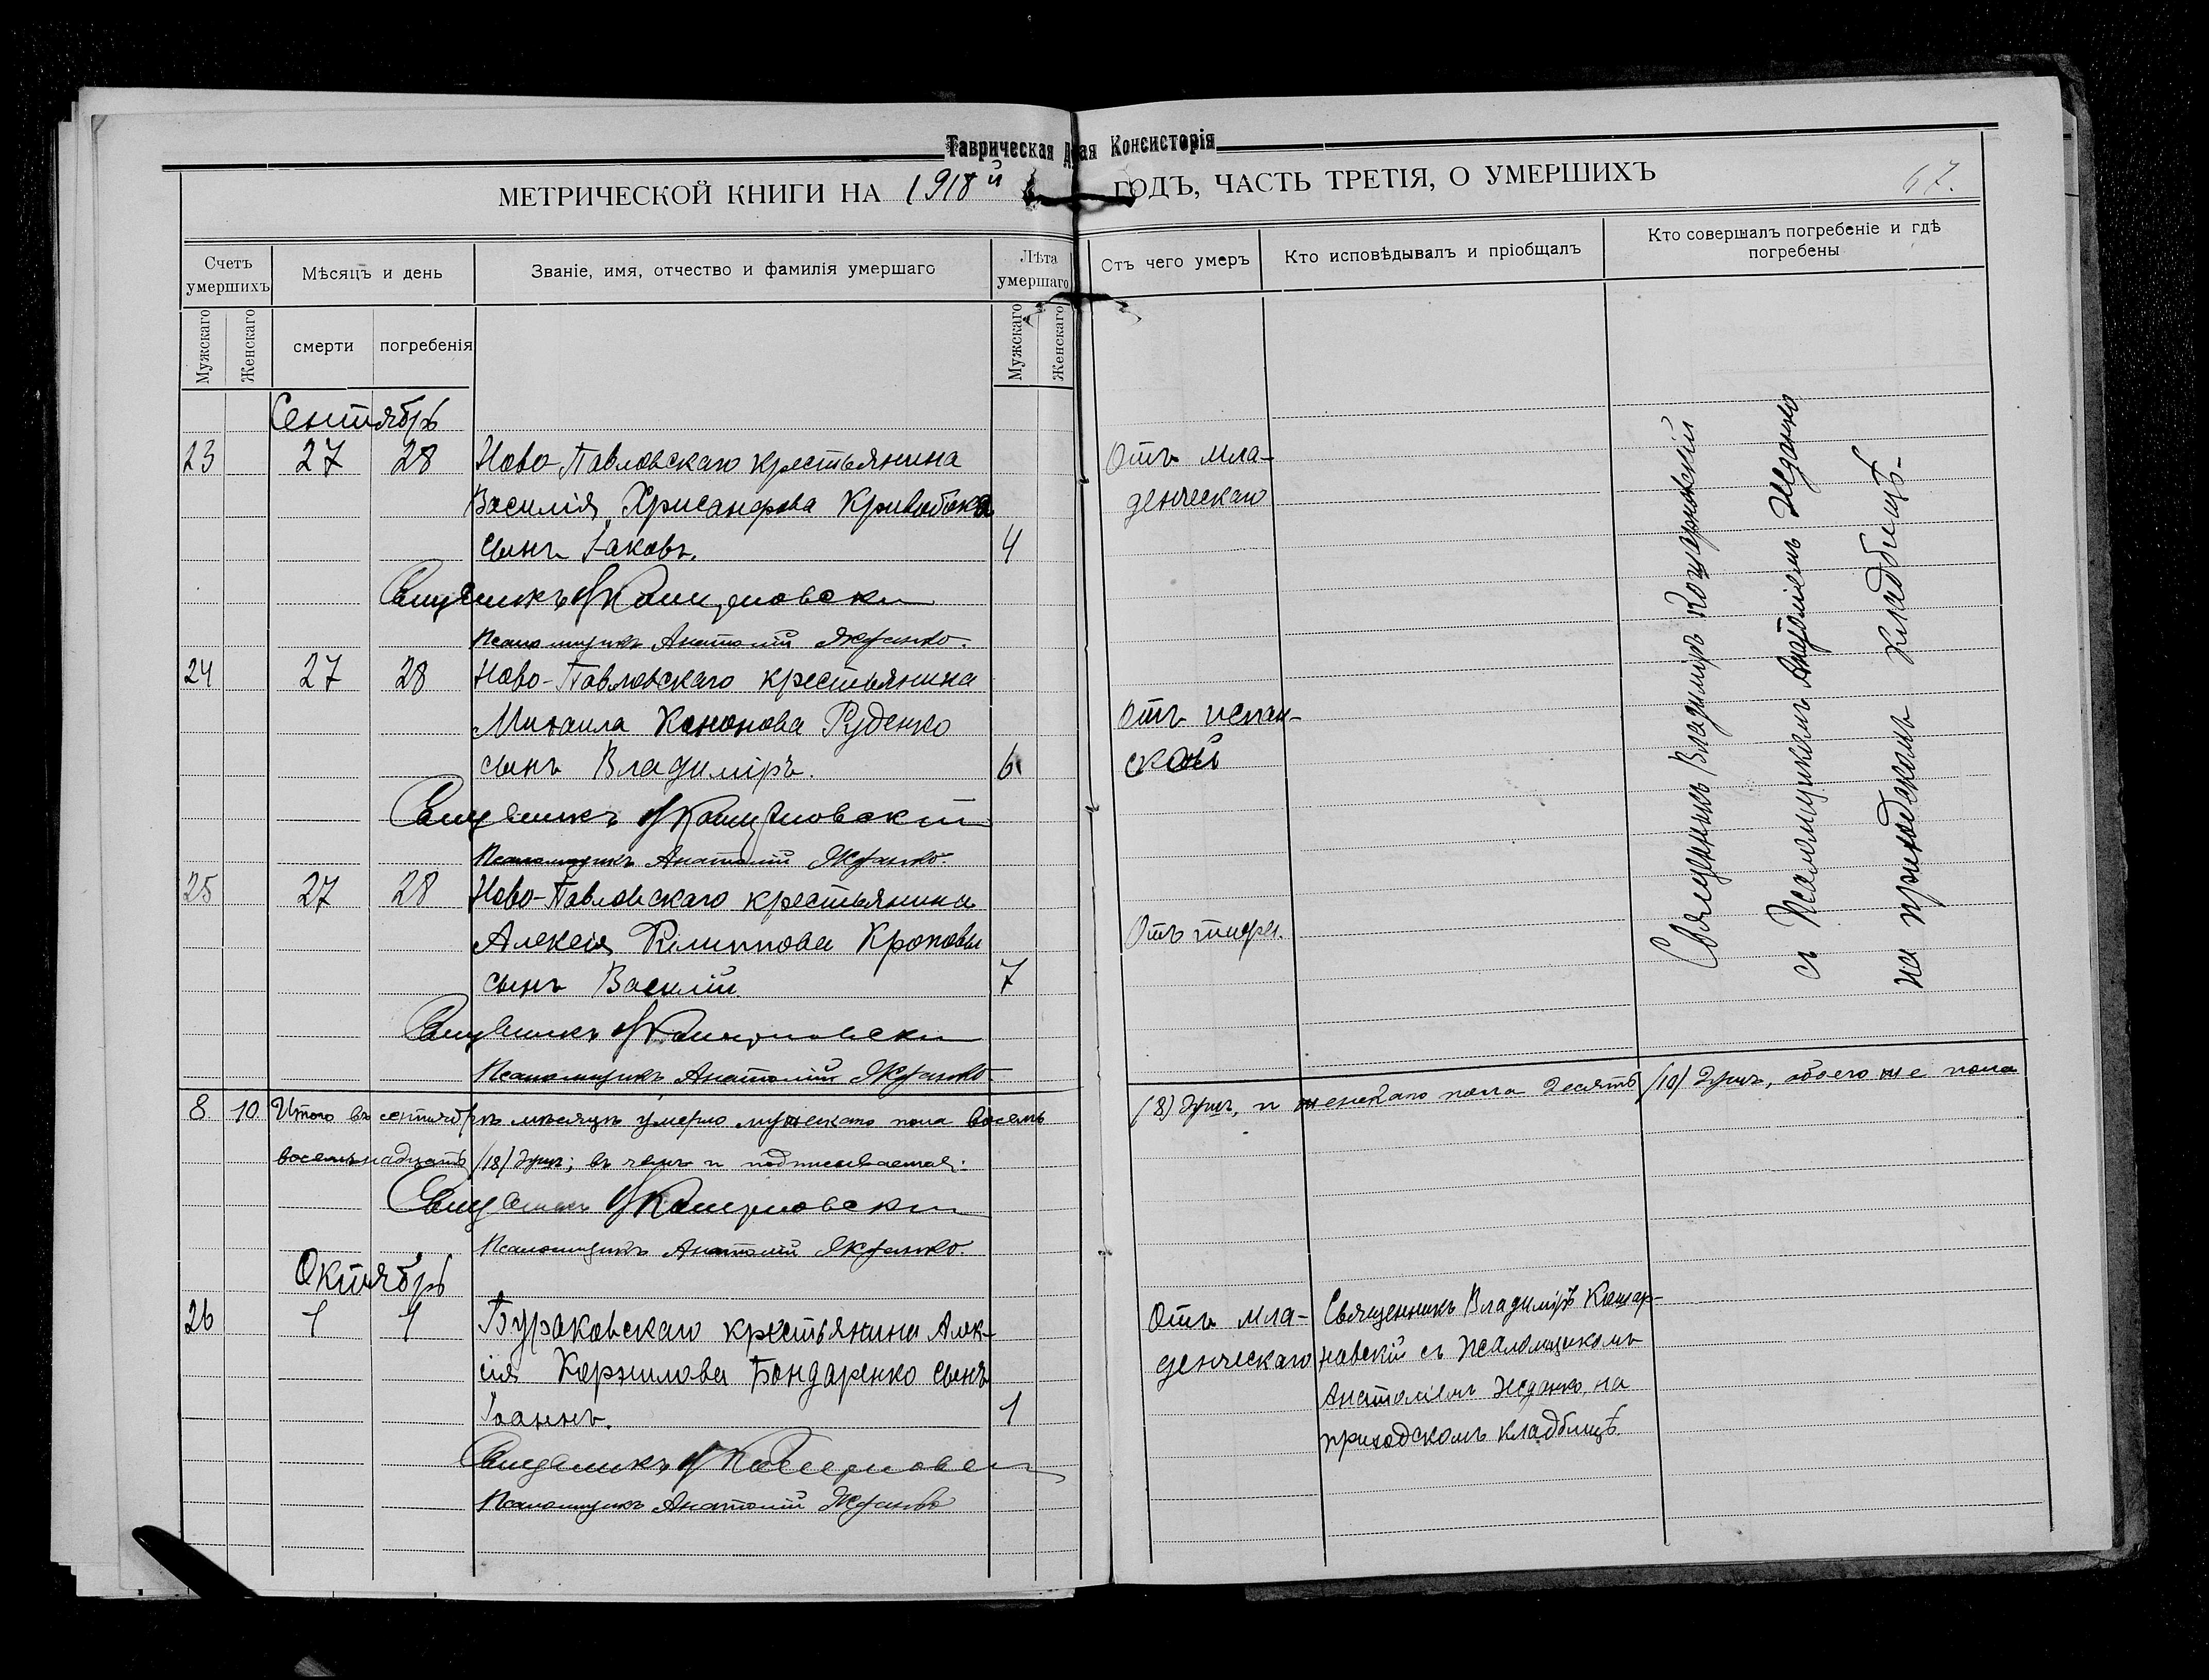 Таврическая Д ая Консисторія
МЕТРИЧЕСКОЙ КНИГИ НА 1918й ГОДЪ, ЧАСТЬ ТРЕТІЯ, О УМЕРШИХЪ
67.
Счетъ умершихъ
Мѣсяцъ и день
Званіе, имя, отчество и фамилія умершаго
Лѣта умершаго
Отъ чего умеръ
Кто исповѣдывалъ и пріобщалъ
Кто совершалъ погребеніе и гдѣ погребены
Мужскаго
Женскаго
смерти
погребенія
Мужскаго
Женскаго
Сентябрь
23 27 28 Ново-Павловскаго крестьянина
Василія Хрисанфова Кривобока
сынъ Іаковъ. 4
Отъ мла-
денческаго
Священникъ В Кощерновский
Псаломщикъ Анатолій Жданко.
24 27 28 Ново-Павловскаго крестьянина
Михаила Кононова Руденко
сынъ Владиміръ. 6
Отъ испан-
ской
Священникъ В Кощерновскій
Псаломщикъ Анатолій Жданко.
25 27 28 Ново-Павловскаго крестьянина
Алексія Филиппова Кроповы
сынъ Василій. 7
Отъ тифа.
Священникъ В Кощерновский
Псаломщикъ Анатолій Жданко
Священникъ Владиміръ Кощерновскій
съ Псаломщикомъ Анатоліемъ Жданко
на приходскомъ кладбищѣ.
8 10 Итого въ сентябрѣ мѣсяцѣ умерло мужескаго пола восемь (8) душъ, и женскаго пола десять (10) душъ, обоего же пола
восемьнадцать (18) душъ; въ чемъ и подписываемся:
Священникъ В Кощерновский
Псаломщикъ Анатолій Жданко.
Октябрь
26 1 1 Бураковскаго крестьянина Алек-
сія Корнилова Бондаренко сынъ
Іоаннъ. 1
Отъ мла-
денческаго
Священникъ Владиміръ Кощер-
новскій съ Псаломщикомъ
Анатоліемъ Жданко, на
приходскомъ кладбищѣ.
Священникъ В Кощерновский
Псаломщикъ Анатолій Жданко